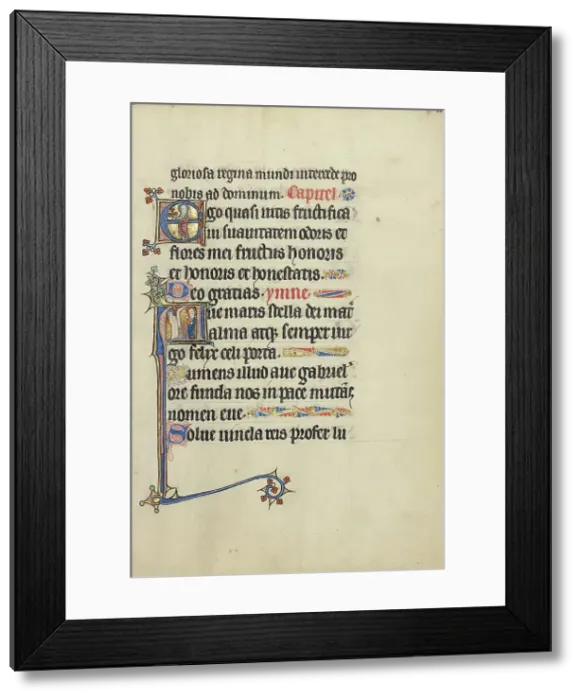 gloriosa regina mundi intercede pro
nobis ad dominum. Capitel
Ego quasi vitis fructifica
in suavitatem odoris et
flores mei fructus honoris
et honoris et honestatis.
Deo gratias. ymne.
Ave maris stella dei mat̃
alma atq; semper vir
go felix celi porta.
Sumens illud ave gabriel
ore funda nos in pace mutañs
nomen eve.
Solve vincla reis profer lu